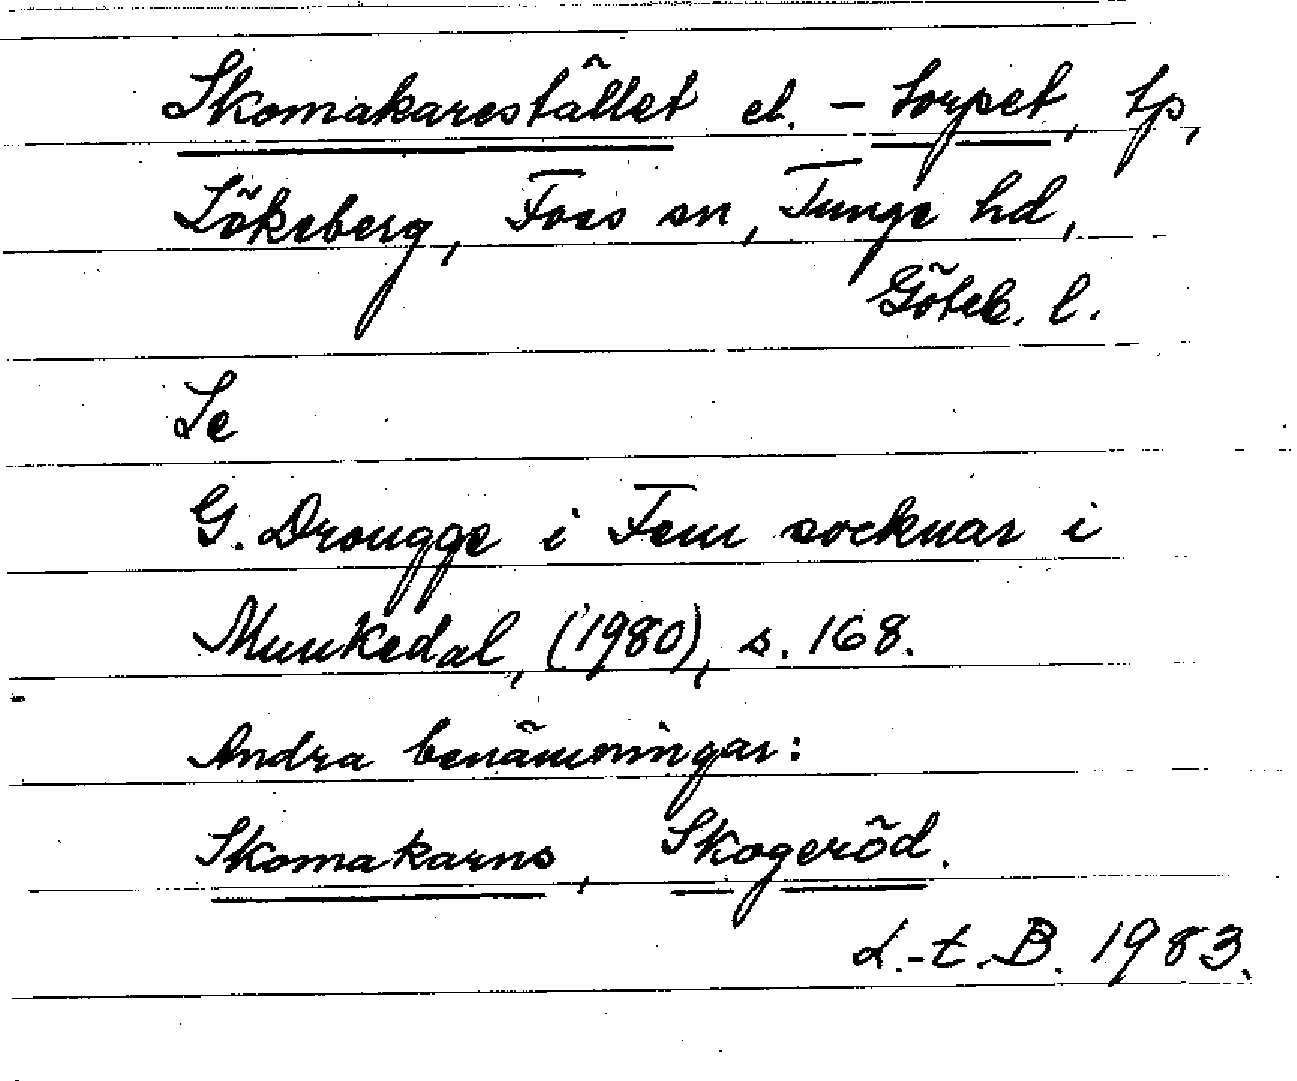 Skomakarestället el. – torpet, tp,
Lökeberg, Foss sn, Tunge hd,
Göteb. l.
Se
G. Drougge i Fem socknar i
Munkedal, (1980), s. 168.
Andra benämningar:
Skomakarns, Skogeröd.
L.-t. B. 1983.